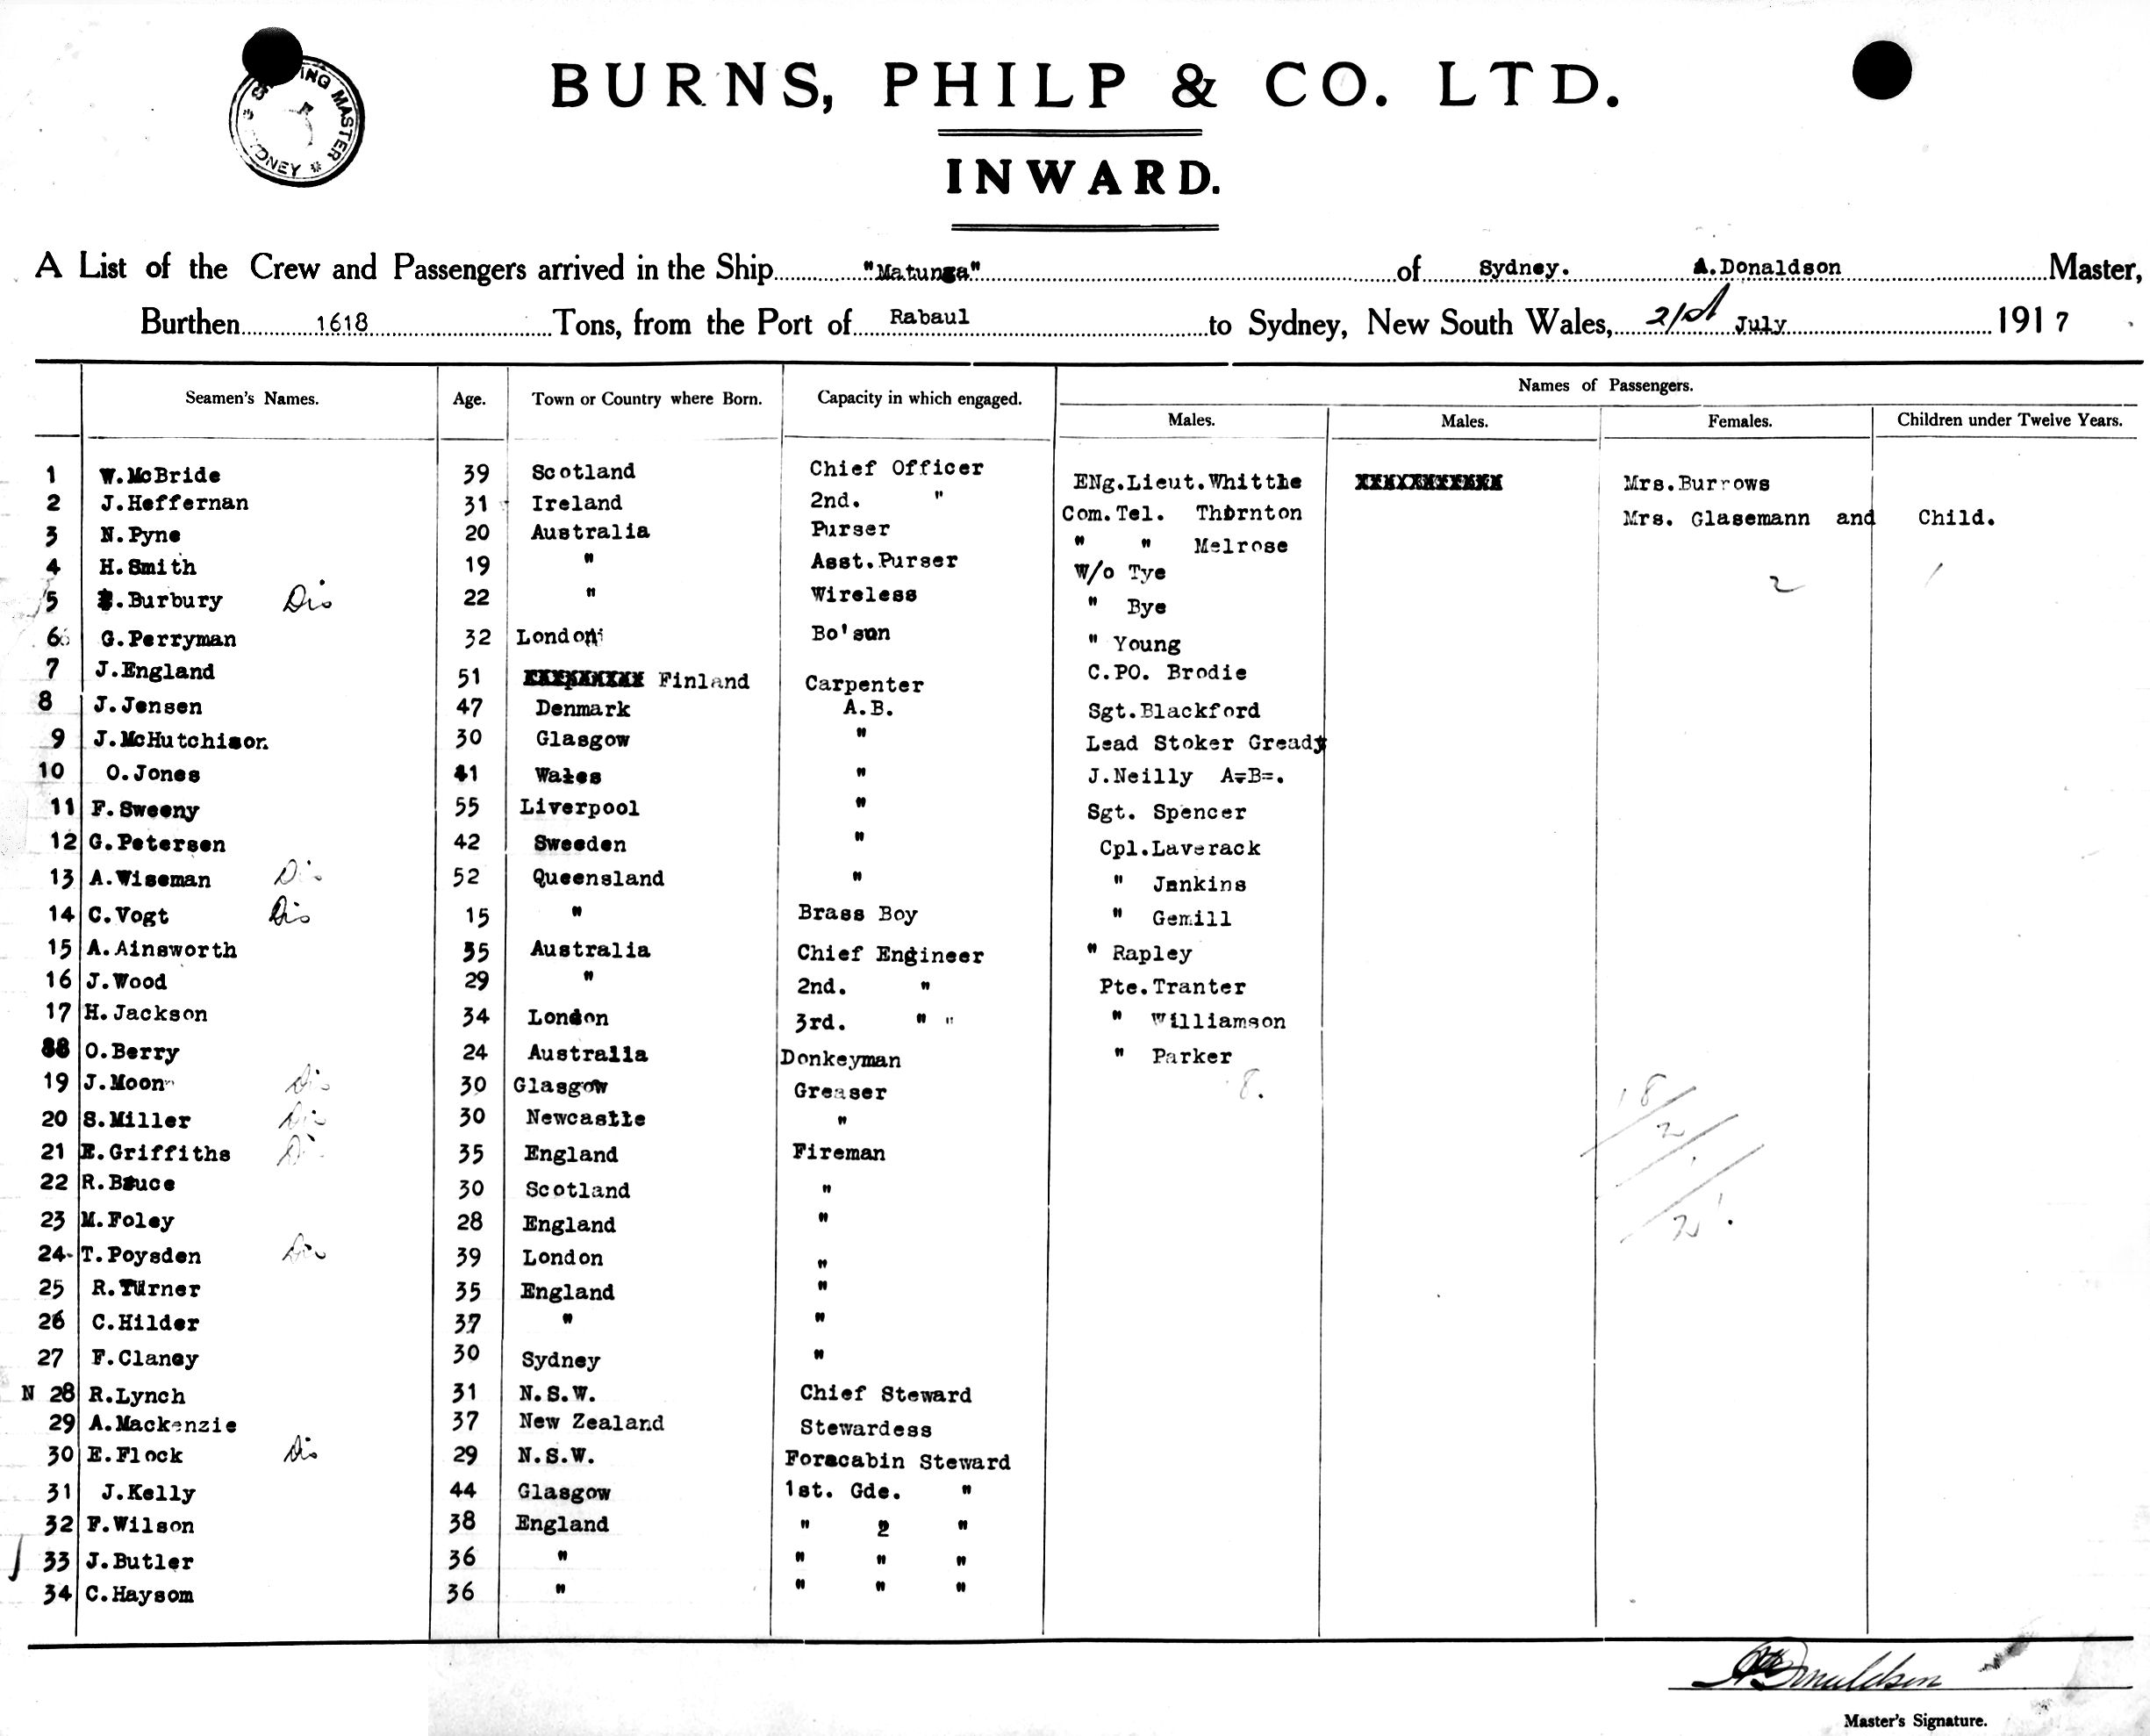 BURNS, PHILP & CO. LTD.
INWARD.
A List of the Crew and Passengers arrived in the Ship "Matunga" of Sydney. A.Donaldson Master,
Burthen 1618 Tons, from the Port of Rabaul to Sydney, New South Wales, 21st July 1917
Seamen's Names. Age. Town or Country where Born. Capacity in which engaged. Names of Passengers.
Males. Males. Females. Children under Twelve Years.
1 W.McBride 39 Scotland Chief Officer ENg.Lieut.Whittle XXXXXXXXXXX Mrs.Burrows
2 J.Heffernan 31 Ireland 2nd. " Com.Tel. Thornton Mrs. Glasemann and Child.
3 N.Pyne 20 Australia Purser " " Melrose
4 H.Smith 19 " Asst.Purser W/o Tye 2 1
5 .Burbury Dis 22 " Wireless " Bye
6 G.Perryman 32 London Bo'sun " Young
7 J.England 51 Finland Carpenter C.PO. Brodie
8 J.Jensen 47 Denmark A.B. Sgt.Blackford
9 J.McHutchison 30 Glasgow " Lead Stoker Gready
10 O.Jones 41 Wales " J.Neilly A=B=.
11 F.Sweeny 55 Liverpool " Sgt. Spencer
12 G.Petersen 42 Sweeden " Cpl.Laverack
13 A.Wiseman Dis 52 Queensland " " Jenkins
14 C.Vogt Dis 15 " Brass Boy " Gemill
15 A.Ainsworth 35 Australia Chief Engineer " Rapley
16 J.Wood 29 " 2nd. " Pte.Tranter
17 H.Jackson 34 London 3rd. " " " Williamson
88 O.Berry 24 Australia Donkeyman " Parker
19 J.Moon Dis 30 Glasgow Greaser 8. 18
20 S.Miller Dis 30 Newcastle " 2
21 E.Griffiths Dis 35 England Fireman 1
22 R.Bruce 30 Scotland "
23 M.Foley 28 England " 21.
24 T.Poysden Dis 39 London "
25 R.Turner 35 England "
26 C.Hilder 37 " "
27 F.Clancy 30 Sydney "
N 28 R.Lynch 31 N.S.W. Chief Steward
29 A.Mackenzie 37 New Zealand Stewardess
30 E.Flock Dis 29 N.S.W. Foracabin Steward
31 J.Kelly 44 Glasgow 1st. Gde. "
32 F.Wilson 38 England " 2 "
33 J.Butler 36 " " " "
34 C.Haysom 36 " " " "
A Donaldson
Master's Signature.